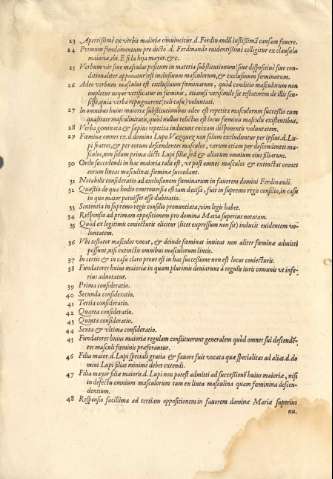 23 Apertissimè ex verbis maioriæ convincitur d. Ferdinandi iustissimā causam fovere.
24 Primum fundamentum pro dicto d. Ferdinando evidentissimè colligitur ex clausula
maioriæ ibi. E si la hija mayor, &c.
25 Verbum vir sive masculus positum in materia substitutionum sive dispositivè sive con-
ditionaliter appositum est inclusivum masculorum, & exclusivum fœminarum.
26 Aliàs verbum masculus est exclusivum fœminarum, quòd conditio masculorum non
impleatur neque verificatur in fœmina, etiamsi versemur in
quia verba repugnarent
27 In omnibus huius maioriæ substitutionibus aliàs est repetitus masculorum successio cum
qualitate masculinitatis, quòd nullus relictus est locus fœminis masculis existentibus.
28 Verba geminata & sæpius repetita inducunt enixam disponentis voluntatem.
29 Fœminæ omnes ex d. domina Lupi Vazquez non solum excluduntur per ipsius d. Lu-
pi fratres, & per eorum descendentes masculos, verum etiam per descendentes mascu-
los, non solum primæ dictæ Lupi filiæ sed & aliarum omnium eius sororum.
30 Ordo succedendi in hac maioria talis est, ut post omnes masculos & extinctas omnes
eorum lineas masculinas fœminæ succedant.
31 Notabile consideratio ad exclusionem fœminarum in favorem domini Ferdinandi.
32 Quæstio de qua hodie controversia est iam decisa, fuit in supremo regio consilio, in casu
in quo maior potuisset esse dubitatio.
33 Sententia in supremo regio consilio pronuntiata, vim legis habet.
34 Responsio ad primam oppositionem pro domina Maria superius notatam.
35 Quid ex legitimis coniecturis elicitur (licet expressum non sit) inducit evidentem vo-
luntatem.
36 Ubi testator masculos vocat, & deinde fœminas invitat non aliter fœminæ admitti
possunt nisi extinctis omnibus masculorum lineis.
37 In certis & in casu claro prout est in hac successione non est locus coniecturis.
38 Fundatores huius maioriæ in quam plurimis deviarunt à regulis iuris communis ut infe-
rius adnotatur.
39 Prima consideratio.
40 Secunda consideratio.
41 Tertia consideratio.
42 Quarta consideratio.
43 Quinta consideratio.
44 Sexta & ultima consideratio.
45 Fundatores huius maioriæ regulam constituerunt generalem quòd omnes sui descendē-
tes masculi fœminis præferantur.
46 Filia maior d. Lupi speciali gratia & favore fuit vocata quæ specialitas ad alias d. do
mini Lupi filias minimè debet extendi.
47 Filia maior filiæ maioris d. Lupi non potest admitti ad successionē huius maioriæ, nisi
in defectu omnium masculorum tam ex linea masculina quam fœminina descen-
dentium.
48 Responsio facillima ad tertiam oppositionem in favorem dominæ Mariæ superius
nu.